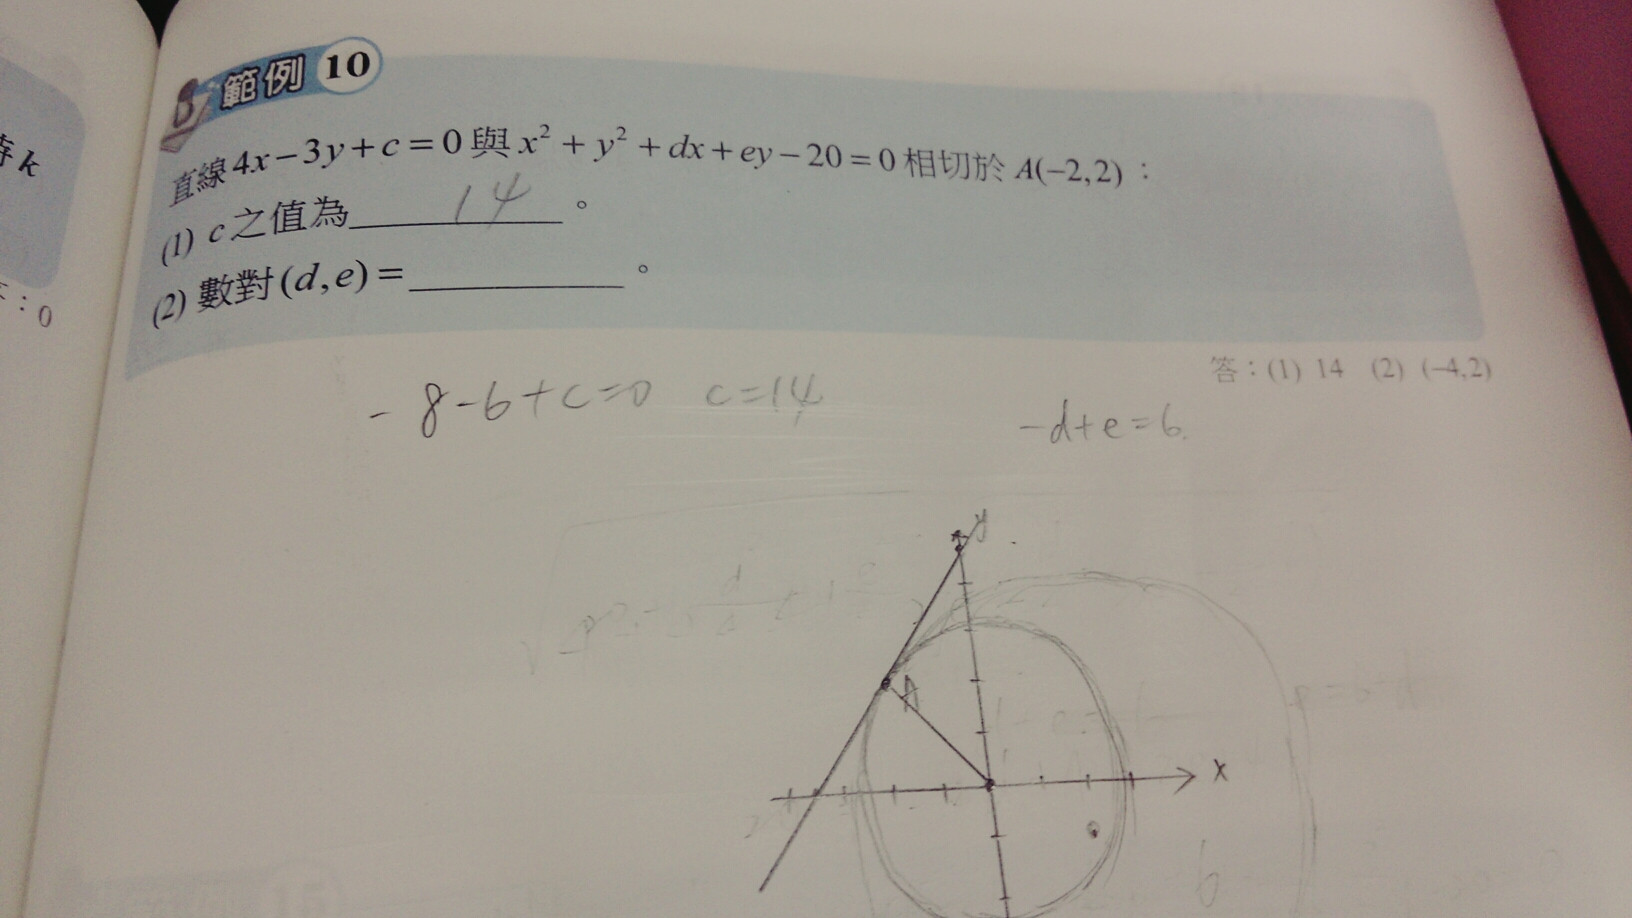 範例 10
直線 4x-3y+c=0 與 x²+y²+dx+ey-20=0 相切於 A(-2,2)：
(1) c之值為 14 。
(2) 數對(d,e)=______。
:0
答：(1) 14 (2) (-4,2)
-8-6+c=0 c=14
-d+e=6
y
A
x